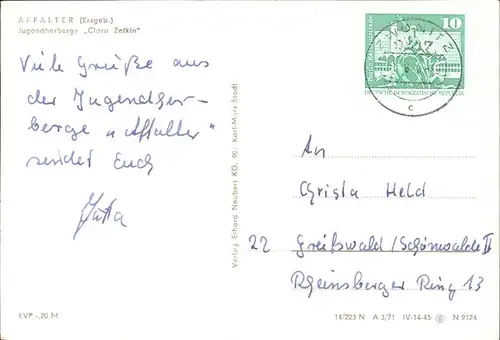 AFFALTER (Erzgeb.)
Jugendherberge „Clara Zetkin"
Viele Grüße aus
der Jugendher-
berge „Affalter"
sendet Euch
Jutta
Verlag Erhard Neubert KG, 901 Karl-Marx-Stadt
10
DEUTSCHE DEMOKRATISCHE REPUBLIK
ZWÖNITZ
c
An
Christa Held
22 Greifswald/Schönwalde II
Rheinsberger Ring 13
EVP -,20 M
14/223 N A 3/71 IV-14-45 N 9124